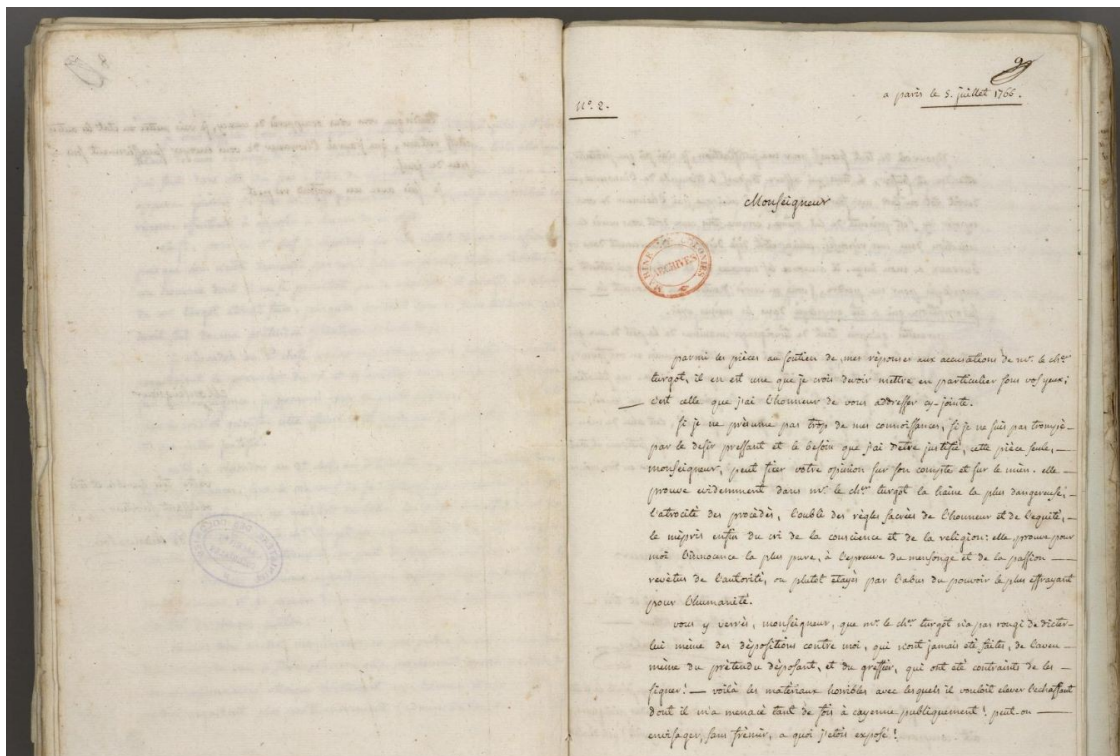 a paris le 5. juillet 1766.
N.° 2.
Monseigneur
MARINE COLONIES
ARCHIVES
parmi les pièces au soutien de mes réponses aux accusations de mr. le cher.
turgot, il en est une que je crois devoir mettre en particulier sous vos yeux;
c'est celle que j'ai l'honneur de vous addresser cy-jointe.
si je ne présume pas trop de mes connoissances, si je ne suis pas trompé
par le desir pressant et le besoin que j'ai d'être justifié, cette pièce seule,
monseigneur, peut fixer votre opinion sur son compte et sur le mien. elle
prouve evidemment dans mr. le cher. turgot la haine la plus dangereuse,
l'atrocité des procédés, l'oubli des règles sacrées de l'honneur et de l'equité,
le mépris enfin du cri de la conscience et de la religion: elle prouve pour
moi l'innocence la plus pure, à l'epreuve du mensonge et de la passion
revètus de l'autorité, ou plutot etayés par l'abus du pouvoir le plus effrayant
pour l'humanité.
vous y verrés, monseigneur, que mr. le cher. turgot n'a pas rougi de dicter
lui même des dépositions contre moi, qui n'ont jamais été faites, de l'aveu
même du prétendu déposant, et du greffier, qui ont été contraints de les
signer! — voilà les matériaux horribles avec lesquels il vouloit elever l'echaffaut
dont il m'a menacé tant de fois à cayenne publiquement! peut-on
envisager, sans frémir, a quoi j'etois exposé!